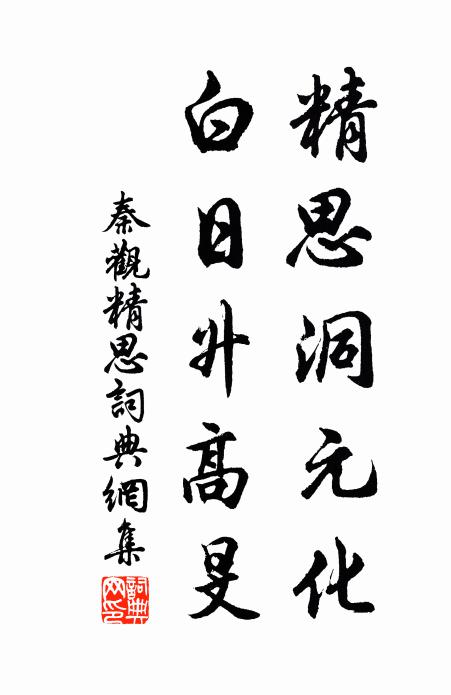 精思洞元化
白日升高旻
秦觀精思詞典網集
詞典網印